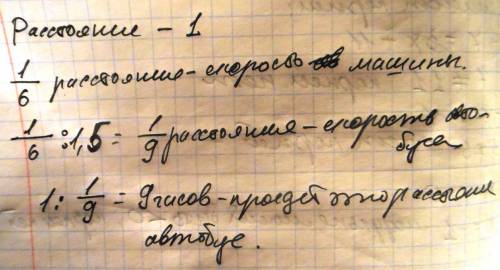 Расстояние - 1
1/6 расстояние - скорость машины.
1/6 : 1,5 = 1/9 расстояния - скорость авто-
буса
1 : 1/9 = 9 часов - проедет это расстояние
автобус.